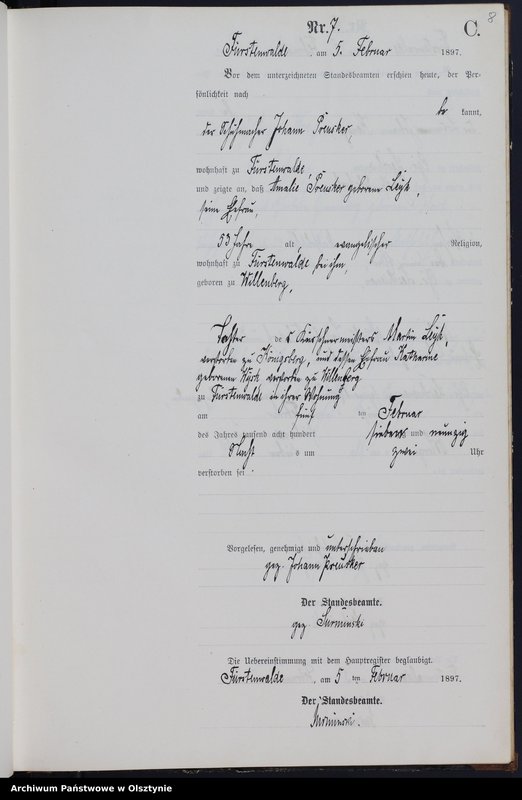 8
Nr. 7.
C.
Fürstenwalde, am 5. Februar 1897.
Vor dem unterzeichneten Standesbeamten erschien heute, der Per-
sönlichkeit nach
be kannt,
der Schuhmacher Johann Preusker,
wohnhaft zu Fürstenwalde
und zeigte an, daß Amalie Preusker geborene Leyk,
seine Ehefrau,
53 Jahre alt, evangelischer Religion,
wohnhaft zu Fürstenwalde bei ihm,
geboren zu Willenberg,
Tochter des Kürschnermeisters Martin Leyk,
verstorben zu Königsberg, und dessen Ehefrau Katharine
geborenen verstorben zu Willenberg
zu Fürstenwalde in ihrer Wohnung
am fünf ten Februar
des Jahres tausend acht hundert sieben und neunzig
Nachts um zwei Uhr
verstorben sei.
Vorgelesen, genehmigt und unterschrieben
gez. Johann Preusker
Der Standesbeamte.
gez. Surminski
Die Uebereinstimmung mit dem Hauptregister beglaubigt.
Fürstenwalde, am 5 ten Februar 1897.
Der Standesbeamte.
Surminski.
Archiwum Państwowe w Olsztynie